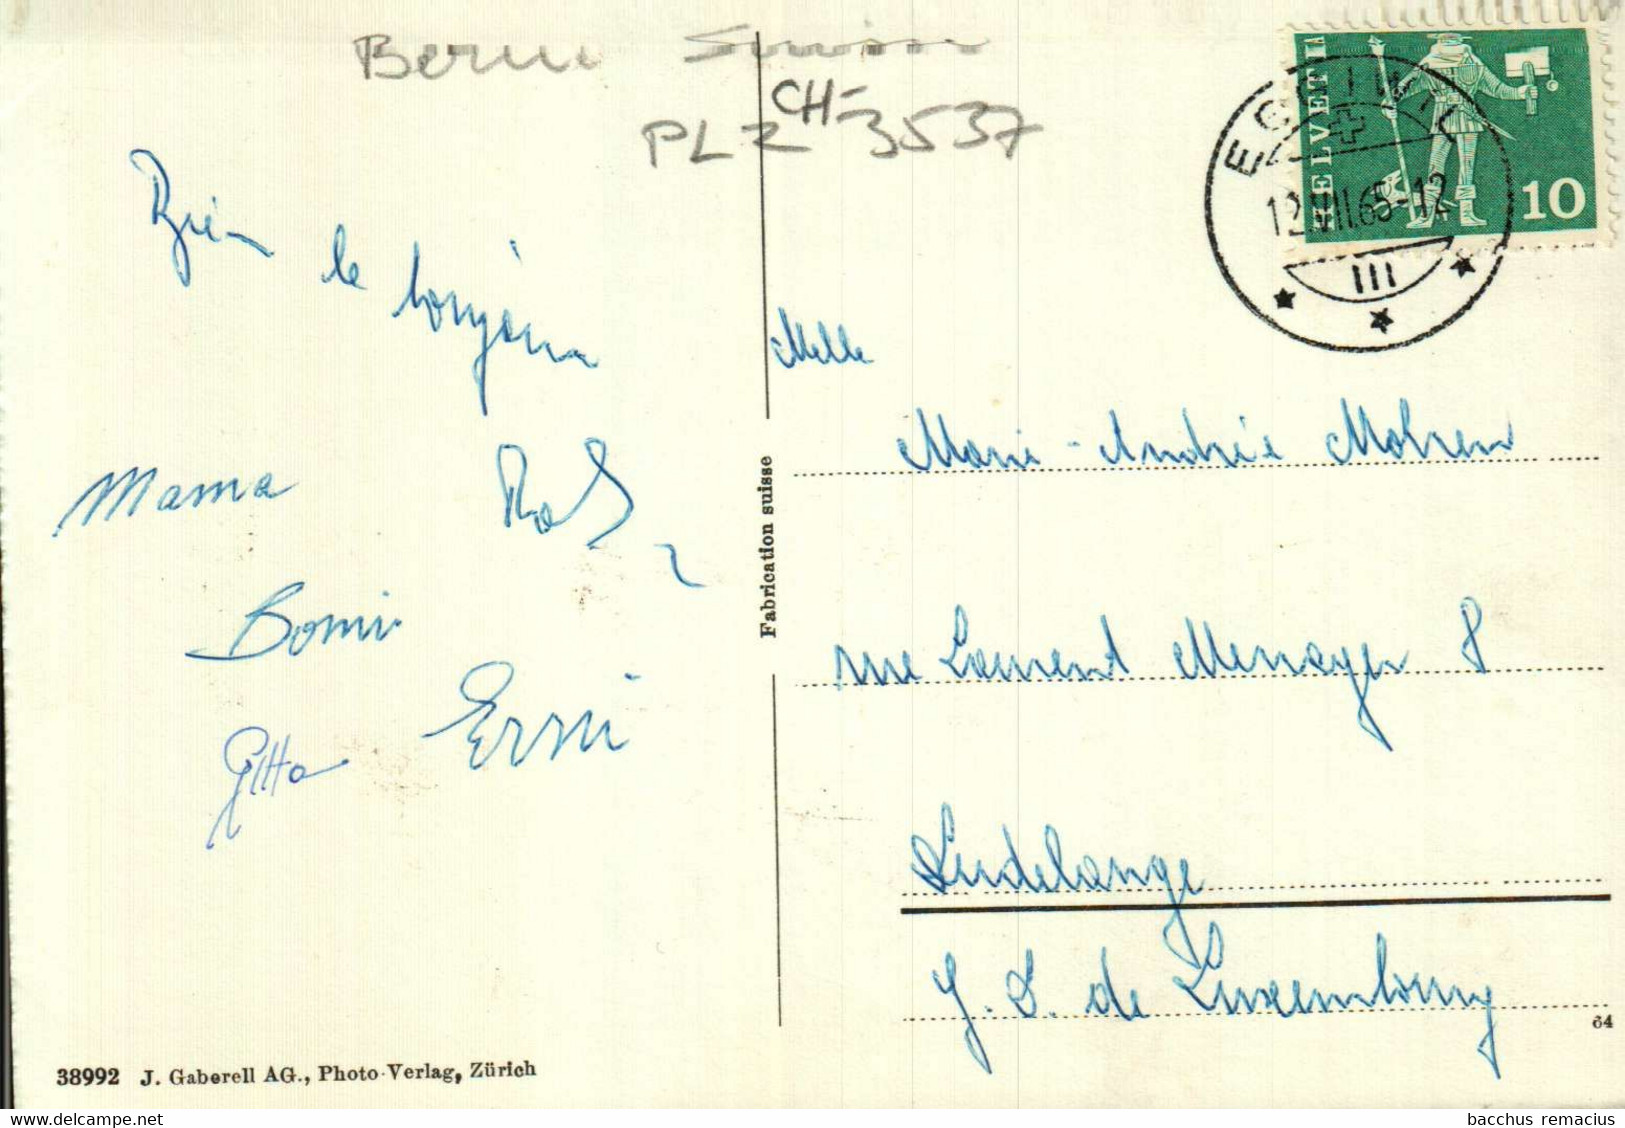 Berne Suisse
CH-
PLZ 3537
HELVETIA
10
EGGIWIL
12.VII.65-12
III
Bien le bonjour
Mama Rob
Bomi
Erni
Gitta
Fabrication suisse
Melle
Marie-Andrée Mohren
rue Laurent Menager 8
Dudelange
G. D. de Luxembourg
64
38992 J. Gaberell AG., Photo-Verlag, Zürich
bacchus remacius